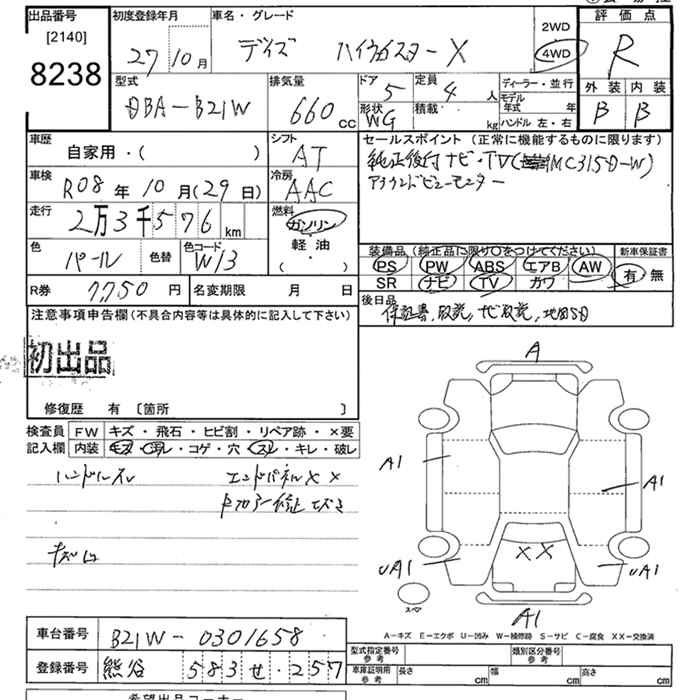 出品番号 初度登録年月 車名・グレード 評価点
[2140] 27年10月 デイズ ハイウェイスターX 2WD 4WD R
8238
型式 排気量 ドア 定員 ディーラー・並行 外装 内装
DBA-B21W 660cc 5 4人 モデル年式 年 B B
形状 WG 積載 kg ハンドル 左・右
車歴 シフト セールスポイント (正常に機能するものに限ります)
自家用・( ) AT 純正後付ナビ・TV(MC315D-W)
車検 冷房 アラウンドビューモニター
R08年10月(29日) AAC
走行 燃料
2万3千576km ガソリン
軽油
( ・ )
色 色替 色コード 装備品 (純正品に限り○をつけてください) 新車保証書
パール W13 PS PW ABS エアB AW 有 無
SR ナビ TV カワ
R券 7,750円 名変期限 月 日 後日品
保証書、取説、ナビ取説、地図SD
注意事項申告欄 (不具合内容等は具体的に記入して下さい)
初出品
修復歴 有 〔箇所 〕
A
検査員 FW キズ・飛石・ヒビ割・リペア跡・×要
記入欄 内装 キズ・汚レ・コゲ・穴・スレ・キレ・破レ
ハンドルスレ エンドパネルXX
A1
A1
キズ
XX
UA1
UA1
スペア
A1
A-キズ E-エクボ U-凹み W-補修跡 S-サビ C-腐食 XX-交換済
車台番号 B21W-0301658
型式指定番号 参考 類別区分番号 参考
登録番号 熊谷 583 せ ・257
車庫証明用 参考 長さ cm 幅 cm 高さ cm
希望出品コーナー